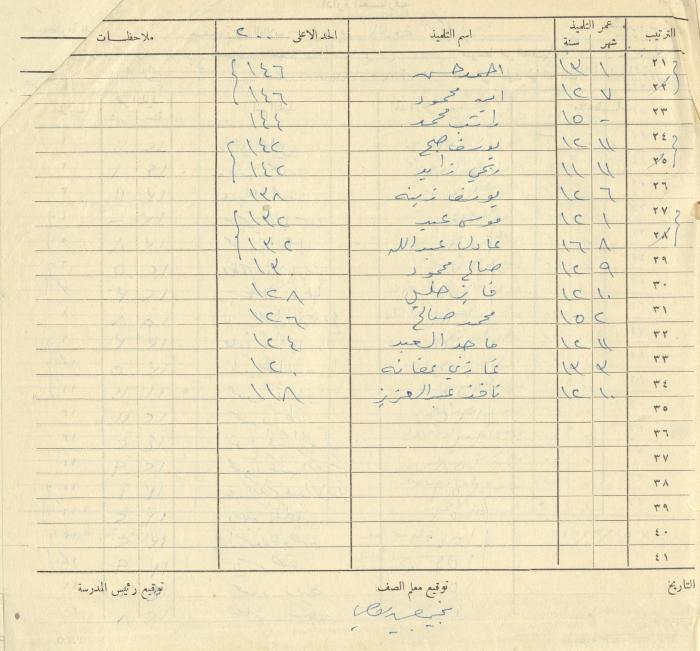 الترتيب عمر التلميذ شهر سنة اسم التلميذ الحد الاعلى ٢٠٠ ملاحظات
٢١ ١ ١٣ احمد حسن ١٤٦
٢٢ ٧ ١٢ محمود ١٤٦
٢٣ - ١٥ راتب محمد ١٤٤
٢٤ ١١ ١٢ يوسف صبح ١٤٢
٢٥ ١١ ١١ ربحي زايد ١٤٢
٢٦ ٦ ١٢ يوسف زينه ١٣٨
٢٧ ١ ١٢ موسى عيد ١٣٢
٢٨ ٨ ١٦ عادل عبد الله ١٣٢
٢٩ ٩ ١٢ صالح محمود ١٣٠
٣٠ ١٠ ١٢ فايز خليل ١٢٨
٣١ ٢ ١٥ محمد صالح ١٢٦
٣٢ ١١ ١٢ ماجد العبد ١٢٤
٣٣ ٣ ١٣ غازي عفانه ١٢٠
٣٤ ١٠ ١٢ نافذ عبد العزيز ١١٨
٣٥
٣٦
٣٧
٣٨
٣٩
٤٠
٤١
التاريخ توقيع معلم الصف توقيع رئيس المدرسة